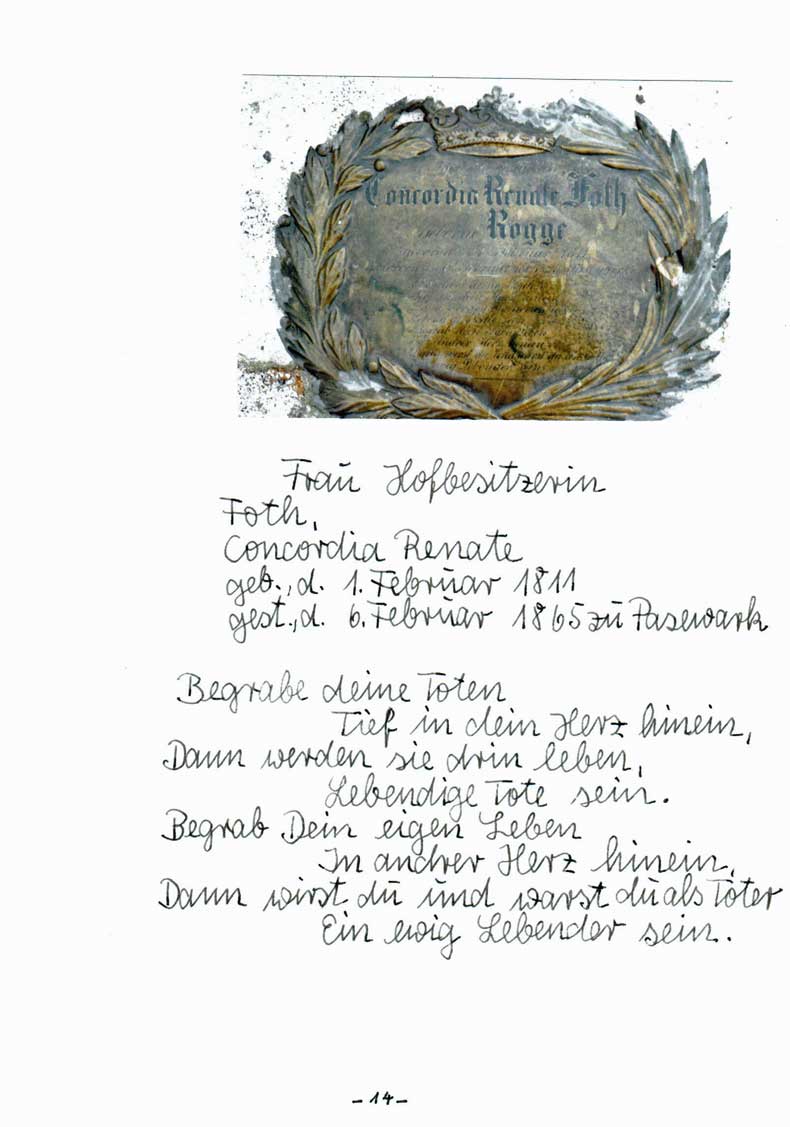 Concordia Renate Foth
Rogge
Frau Hofbesitzerin
Foth,
Concordia Renate
geb., d. 1. Februar 1811
gest., d. 6. Februar 1865 zu Pasewark
Begrabe deine Toten
Tief in dein Herz hinein,
Dann werden sie drin leben,
Lebendige Tote sein.
Begrab Dein eigen Leben
In andrer Herz hinein,
Dann wirst du und warst du als Toter
Ein ewig Lebender sein.
- 14 -